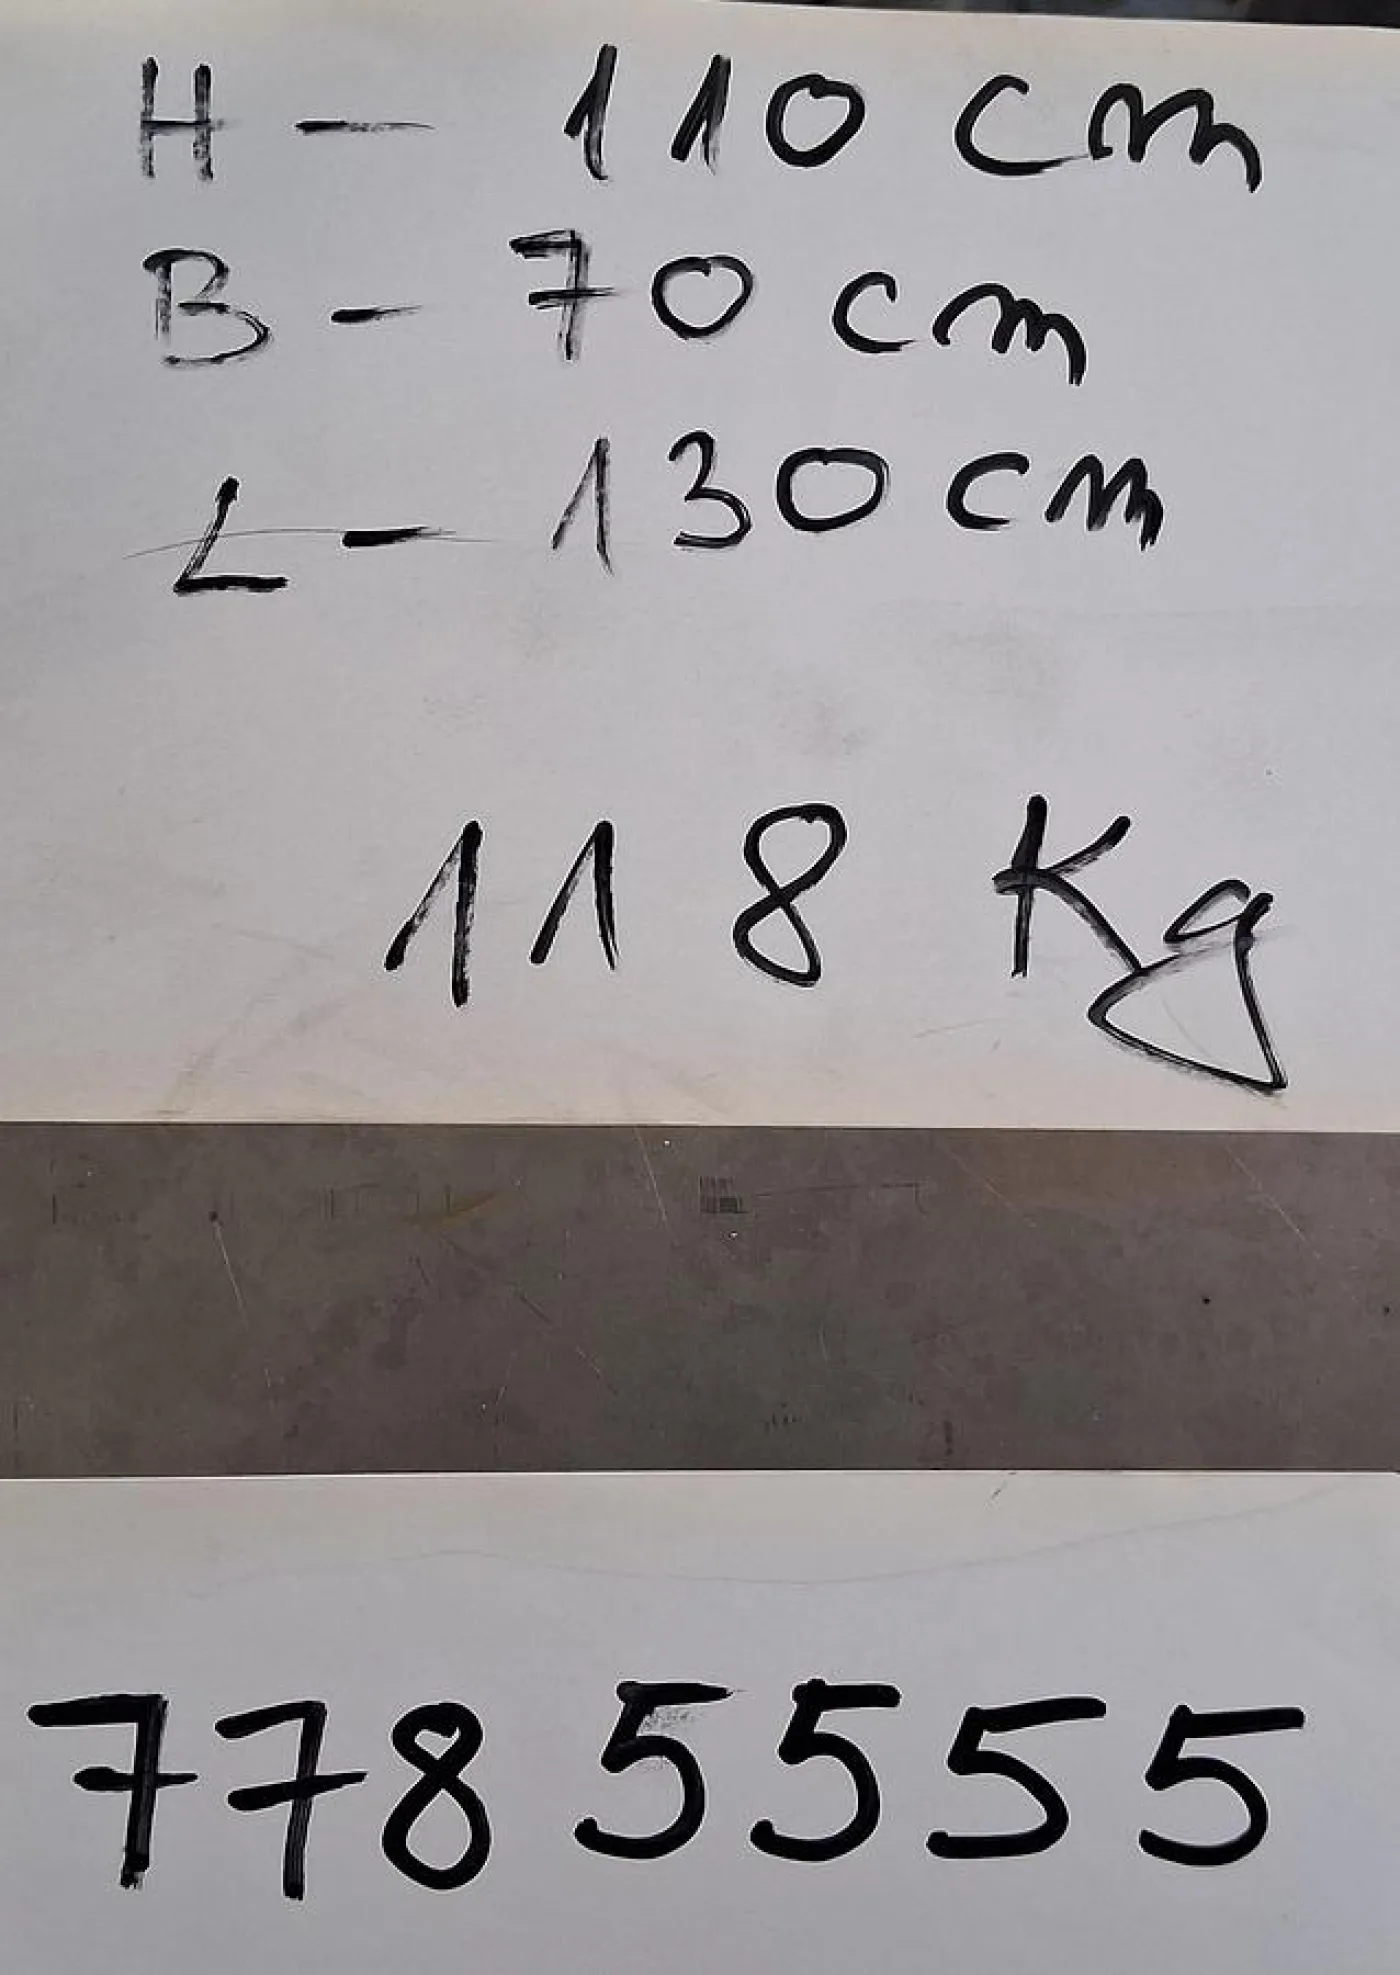 H - 110 cm
B - 70 cm
L - 130 cm
118 Kg
7785555